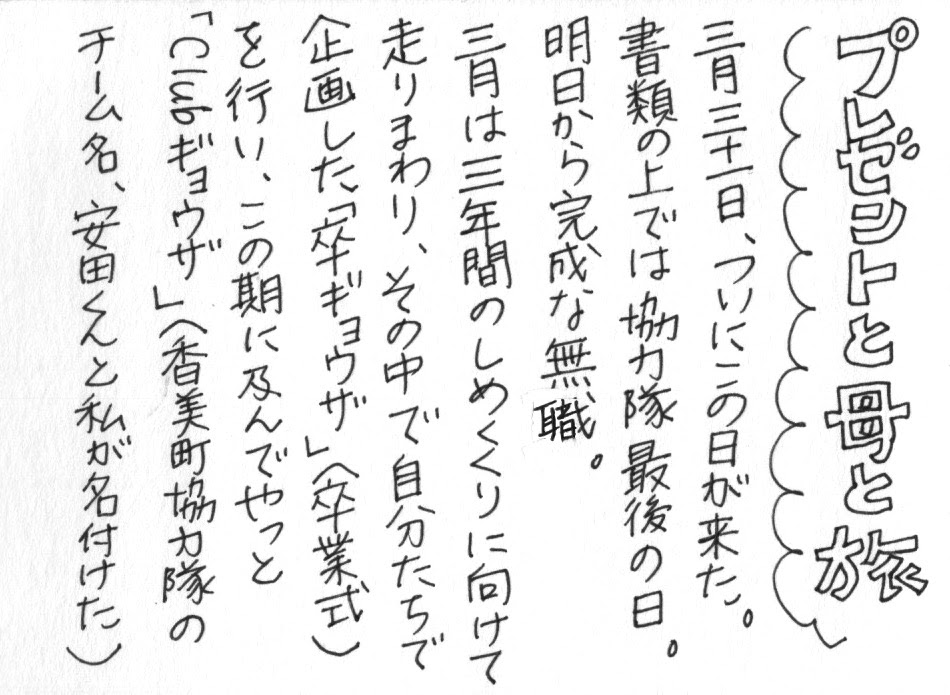 プレゼントと母と旅
三月三十一日、ついにこの日が来た。
書類の上では協力隊最後の日。
明日から完成な無職。
三月は三年間のしめくくりに向けて
走りまわり、その中で自分たちで
企画した、「卒ギョウザ」(卒業式)
を行い、この期に及んでやっと
「Clubギョウザ」(香美町協力隊の
チーム名、安田くんと私が名付けた)